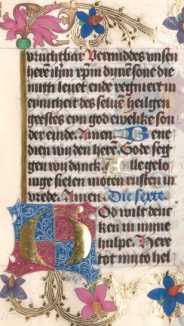 vruchtbar Vermiddes vnsen
here ihm xpm dyne sone die
mitti leuet ende regniert in
eynicheit des seluen heilgen
geestes eyn god ewelike son
der einde. Amen. Bene
dien wy den here. Gode seg
gen wy danck. Alle gelo
uige sielen moten rusten in
vrede. Amen. Die sexte.
God wilt denc
ken in myne
hulpe. Here
tot mi to hel